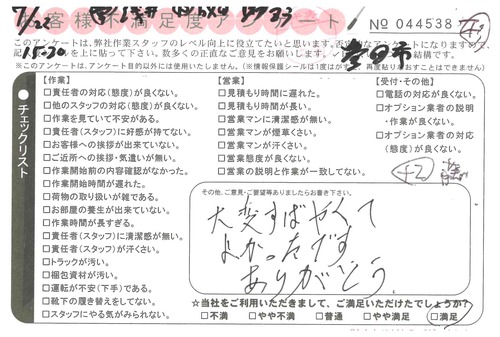 お客様満足度アンケート
No 044538
7/22
11:30
このアンケートは、弊社作業スタッフのレベル向上に役立てたいと思います。
※このアンケートは、アンケート目的以外には使用いたしません。
チェックリスト
【作業】
□責任者の対応(態度)が良くない。
□他のスタッフの対応(態度)が良くない。
□作業を見ていて不安がある。
□責任者(スタッフ)に好感が持てない。
□お客様への挨拶が出来ていない。
□ご近所への挨拶・気遣いが無い。
□作業開始前の内容確認がなかった。
□作業開始時間が遅れた。
□荷物の取り扱いが雑である。
□お部屋の養生が出来ていない。
□作業時間が長すぎる。
□責任者(スタッフ)に清潔感が無い。
□責任者(スタッフ)が汗くさい。
□トラックが汚い。
□梱包資材が汚い。
□運転が不安(下手)である。
□靴下の履き替えをしてない。
□スタッフにやる気がみられない。
【営業】
□見積もり時間に遅れた。
□見積もり時間が長い。
□営業マンに清潔感が無い。
□営業マンが煙草くさい。
□営業マンが汗くさい。
□営業態度が良くない。
□営業の説明と作業が一致してない。
【受付・その他】
□電話の対応が良くない。
□オプション業者の説明
・作業が良くない。
□オプション業者の対応
(態度)が良くない。
その他、ご意見・ご要望等ありましたらお書き下さい。
大変すばやくて
よかったです
ありがとう
☆当社をご利用いただきまして、ご満足いただけたでしょうか?
□不満 □やや不満 □普通 □やや満足 □満足